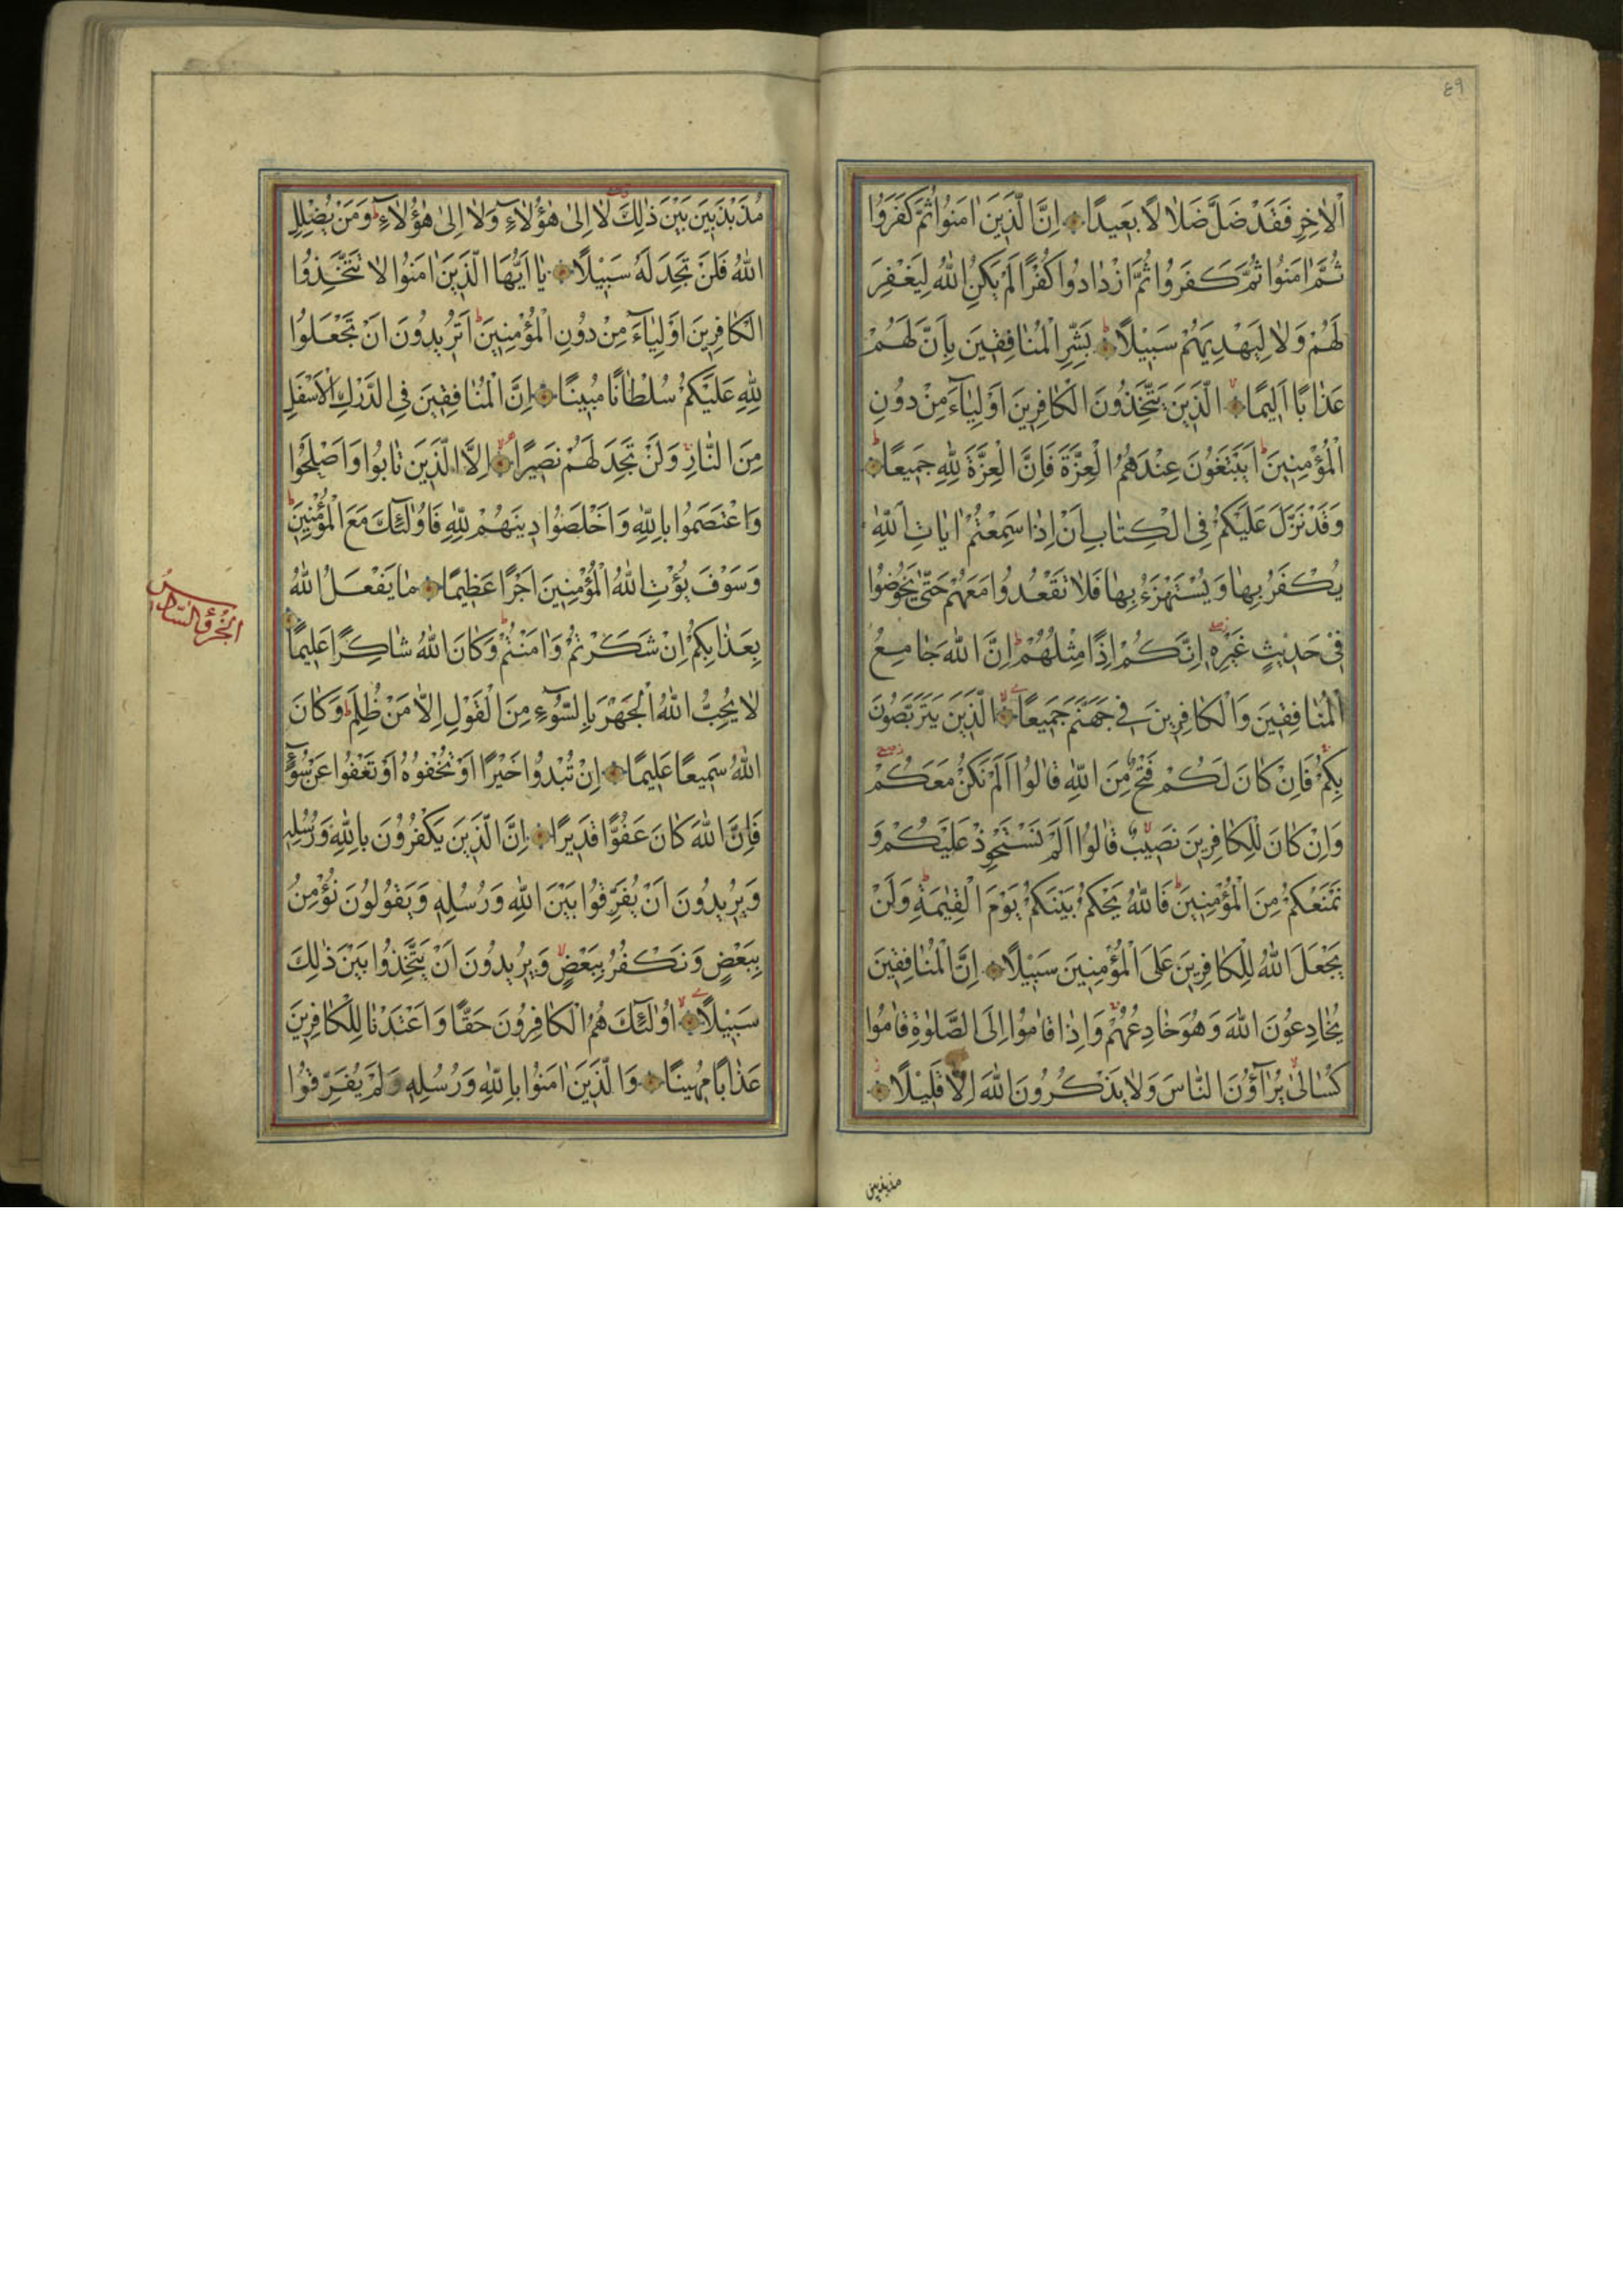 ٤٩
الْاٰخِرِ فَقَدْ ضَلَّ ضَلٰالًا بَعٖيدًا اِنَّ الَّذٖينَ اٰمَنُوا ثُمَّ كَفَرُوا
ثُمَّ اٰمَنُوا ثُمَّ كَفَرُوا ثُمَّ ازْدٰادُوا كُفْرًا لَمْ يَكُنِ اللّٰهُ لِيَغْفِرَ
لَهُمْ وَلٰا لِيَهْدِيَهُمْ سَبٖيلًا بَشِّرِ الْمُنٰافِقٖينَ بِاَنَّ لَهُمْ
عَذٰابًا اَلٖيمًا الَّذٖينَ يَتَّخِذُونَ الْكٰافِرٖينَ اَوْلِيٰآءَ مِنْ دُونِ
الْمُؤْمِنٖينَ اَيَبْتَغُونَ عِنْدَهُمُ الْعِزَّةَ فَاِنَّ الْعِزَّةَ لِلّٰهِ جَمٖيعًا
وَقَدْ نَزَّلَ عَلَيْكُمْ فِى الْكِتٰابِ اَنْ اِذٰا سَمِعْتُمْ اٰيٰاتِ اللّٰهِ
يُكْفَرُ بِهٰا وَيُسْتَهْزَءُ بِهٰا فَلٰا تَقْعُدُوا مَعَهُمْ حَتّٰى يَخُوضُوا
فٖى حَدٖيثٍ غَيْرِهٖ اِنَّكُمْ اِذًا مِثْلُهُمْ اِنَّ اللّٰهَ جٰامِعُ
الْمُنٰافِقٖينَ وَالْكٰافِرٖينَ فٖى جَهَنَّمَ جَمٖيعًا الَّذٖينَ يَتَرَبَّصُونَ
بِكُمْ فَاِنْ كٰانَ لَكُمْ فَتْحٌ مِنَ اللّٰهِ قٰالُوا اَلَمْ نَكُنْ مَعَكُمْ
وَاِنْ كٰانَ لِلْكٰافِرٖينَ نَصٖيبٌ قٰالُوا اَلَمْ نَسْتَحْوِذْ عَلَيْكُمْ وَ
نَمْنَعْكُمْ مِنَ الْمُؤْمِنٖينَ فَاللّٰهُ يَحْكُمُ بَيْنَكُمْ يَوْمَ الْقِيٰمَةِ وَلَنْ
يَجْعَلَ اللّٰهُ لِلْكٰافِرٖينَ عَلَى الْمُؤْمِنٖينَ سَبٖيلًا اِنَّ الْمُنٰافِقٖينَ
يُخٰادِعُونَ اللّٰهَ وَهُوَ خٰادِعُهُمْ وَاِذٰا قٰامُوا اِلَى الصَّلٰوةِ قٰامُوا
كُسٰالٰى يُرٰآؤُنَ النّٰاسَ وَلٰا يَذْكُرُونَ اللّٰهَ اِلّٰا قَلٖيلًا
مذبذبين
مُذَبْذَبٖينَ بَيْنَ ذٰلِكَ لٰا اِلٰى هٰؤُلٰاءِ وَلٰا اِلٰى هٰؤُلٰاءِ وَمَنْ يُضْلِلِ
اللّٰهُ فَلَنْ تَجِدَ لَهُ سَبٖيلًا يٰا اَيُّهَا الَّذٖينَ اٰمَنُوا لٰا تَتَّخِذُوا
الْكٰافِرٖينَ اَوْلِيٰآءَ مِنْ دُونِ الْمُؤْمِنٖينَ اَتُرٖيدُونَ اَنْ تَجْعَلُوا
لِلّٰهِ عَلَيْكُمْ سُلْطٰانًا مُبٖينًا اِنَّ الْمُنٰافِقٖينَ فِى الدَّرْكِ الْاَسْفَلِ
مِنَ النّٰارِ وَلَنْ تَجِدَ لَهُمْ نَصٖيرًا اِلَّا الَّذٖينَ تٰابُوا وَاَصْلَحُوا
وَاعْتَصَمُوا بِاللّٰهِ وَاَخْلَصُوا دٖينَهُمْ لِلّٰهِ فَاُولٰئِكَ مَعَ الْمُؤْمِنٖينَ
وَسَوْفَ يُؤْتِ اللّٰهُ الْمُؤْمِنٖينَ اَجْرًا عَظٖيمًا مٰا يَفْعَلُ اللّٰهُ
بِعَذٰابِكُمْ اِنْ شَكَرْتُمْ وَاٰمَنْتُمْ وَكٰانَ اللّٰهُ شٰاكِرًا عَلٖيمًا
الجزؤ السادس
لٰا يُحِبُّ اللّٰهُ الْجَهْرَ بِالسُّوٓءِ مِنَ الْقَوْلِ اِلّٰا مَنْ ظُلِمَ وَكٰانَ
اللّٰهُ سَمٖيعًا عَلٖيمًا اِنْ تُبْدُوا خَيْرًا اَوْ تُخْفُوهُ اَوْ تَعْفُوا عَنْ سُوٓءٍ
فَاِنَّ اللّٰهَ كٰانَ عَفُوًّا قَدٖيرًا اِنَّ الَّذٖينَ يَكْفُرُونَ بِاللّٰهِ وَرُسُلِهٖ
وَيُرٖيدُونَ اَنْ يُفَرِّقُوا بَيْنَ اللّٰهِ وَرُسُلِهٖ وَيَقُولُونَ نُؤْمِنُ
بِبَعْضٍ وَنَكْفُرُ بِبَعْضٍ وَيُرٖيدُونَ اَنْ يَتَّخِذُوا بَيْنَ ذٰلِكَ
سَبٖيلًا اُولٰئِكَ هُمُ الْكٰافِرُونَ حَقًّا وَاَعْتَدْنٰا لِلْكٰافِرٖينَ
عَذٰابًا مُهٖينًا وَالَّذٖينَ اٰمَنُوا بِاللّٰهِ وَرُسُلِهٖ وَلَمْ يُفَرِّقُوا